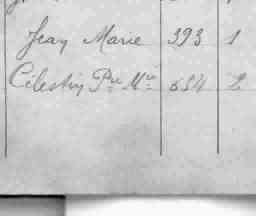 Jean Marie 393 1
Célestin Pre Mie 654 2